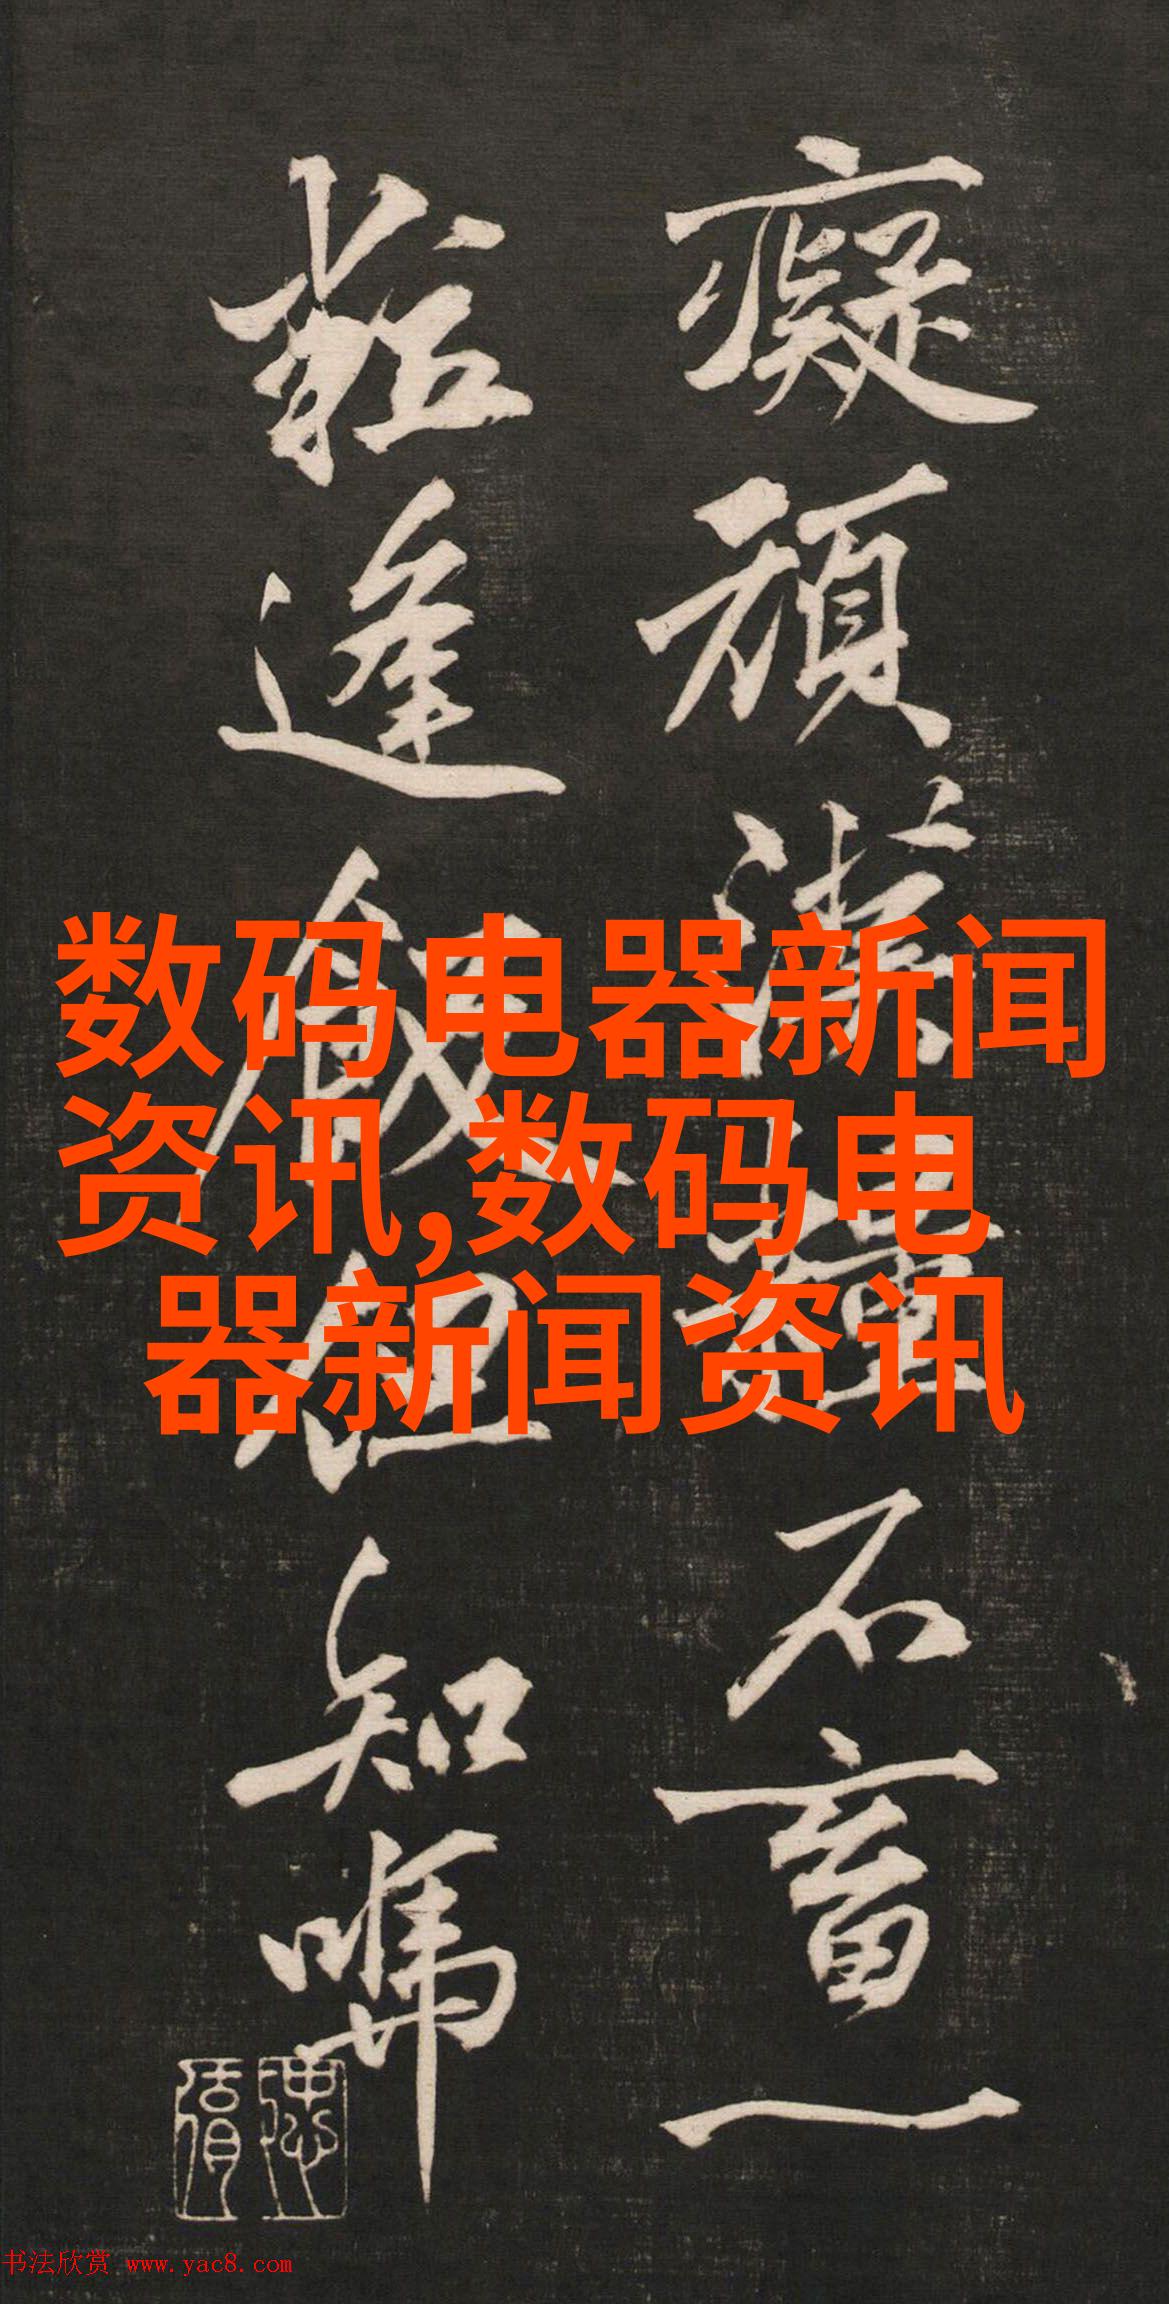 癡頑漢石畜一
逢饑但知
数码电器新闻
资讯,数码电
器新闻资讯
书法欣赏 www.yac8.com